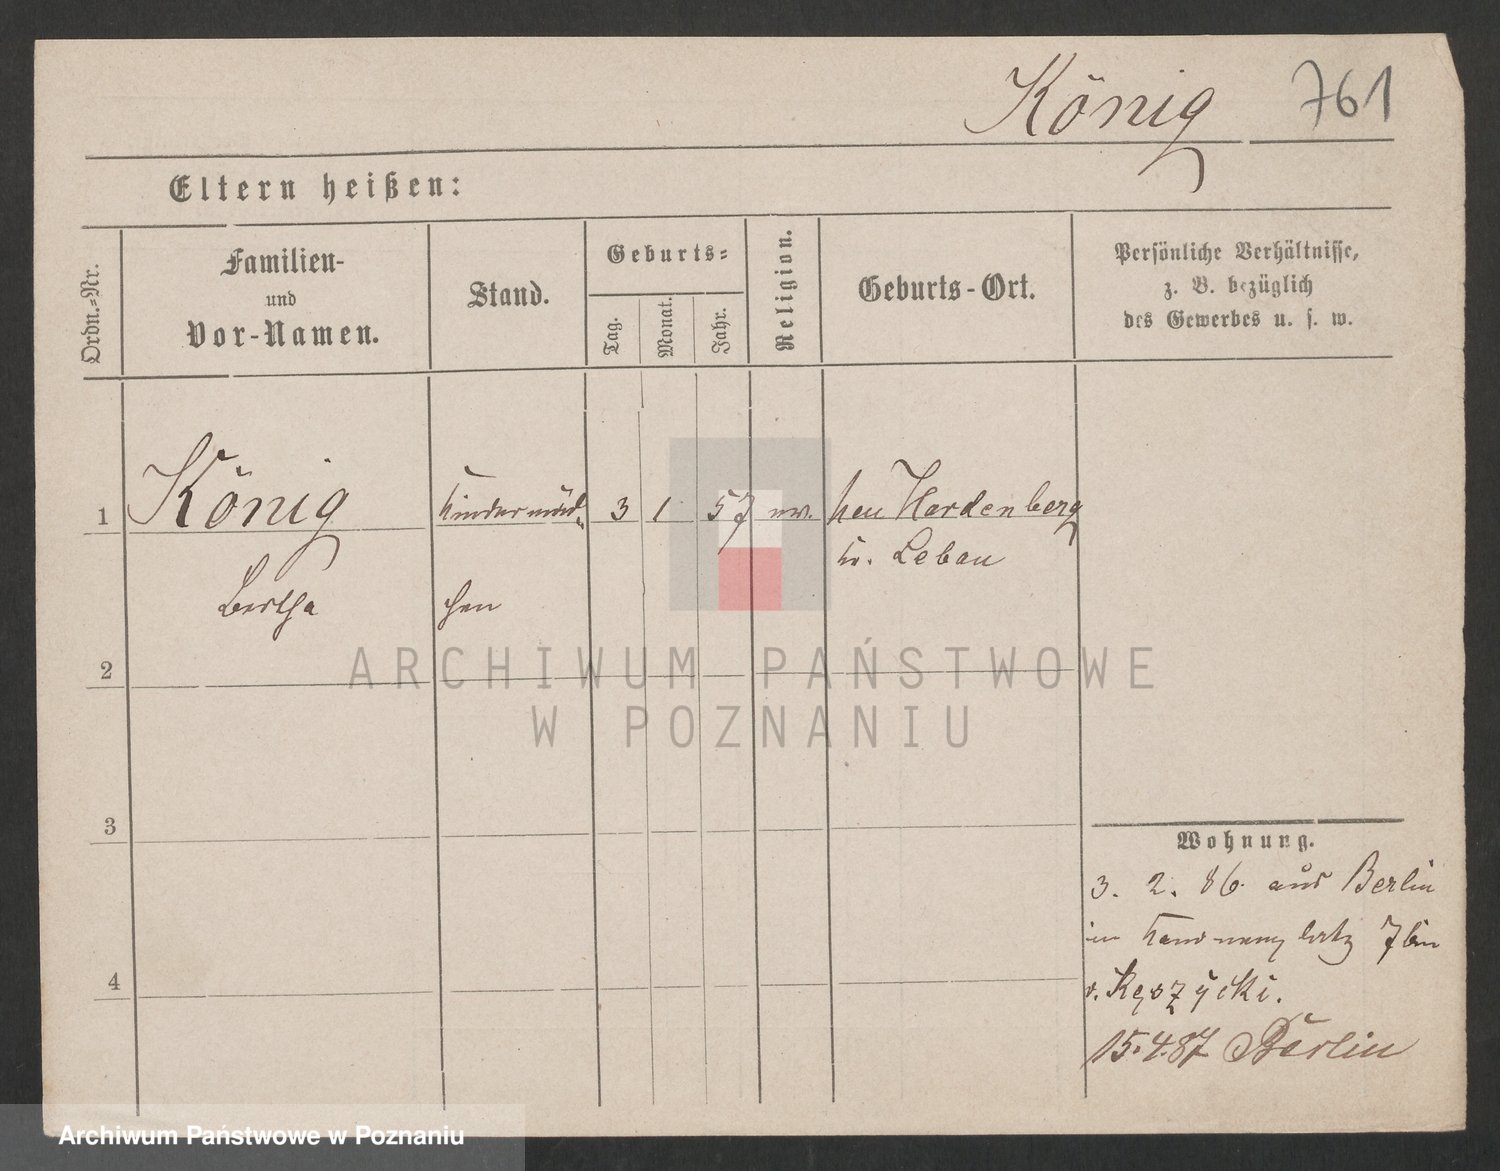 König 761
Eltern heißen:
Ordn.-Nr.
Familien-
und
Vor-Namen.
Stand.
Geburts-
Tag.
Monat.
Jahr.
Religion.
Geburts-Ort.
Persönliche Verhältnisse,
z. B. bezüglich
des Gewerbes u. s. w.
1 König Kindermäd- 3 1 57 ev. Neu Hardenberg
Kr. Lebau
Bertha chen
2
3
4
Wohnung.
3. 2. 86. aus Berlin
7 bei
v. Kęszycki.
15.4.87 Berlin
ARCHIWUM PAŃSTWOWE
W POZNANIU
Archiwum Państwowe w Poznaniu